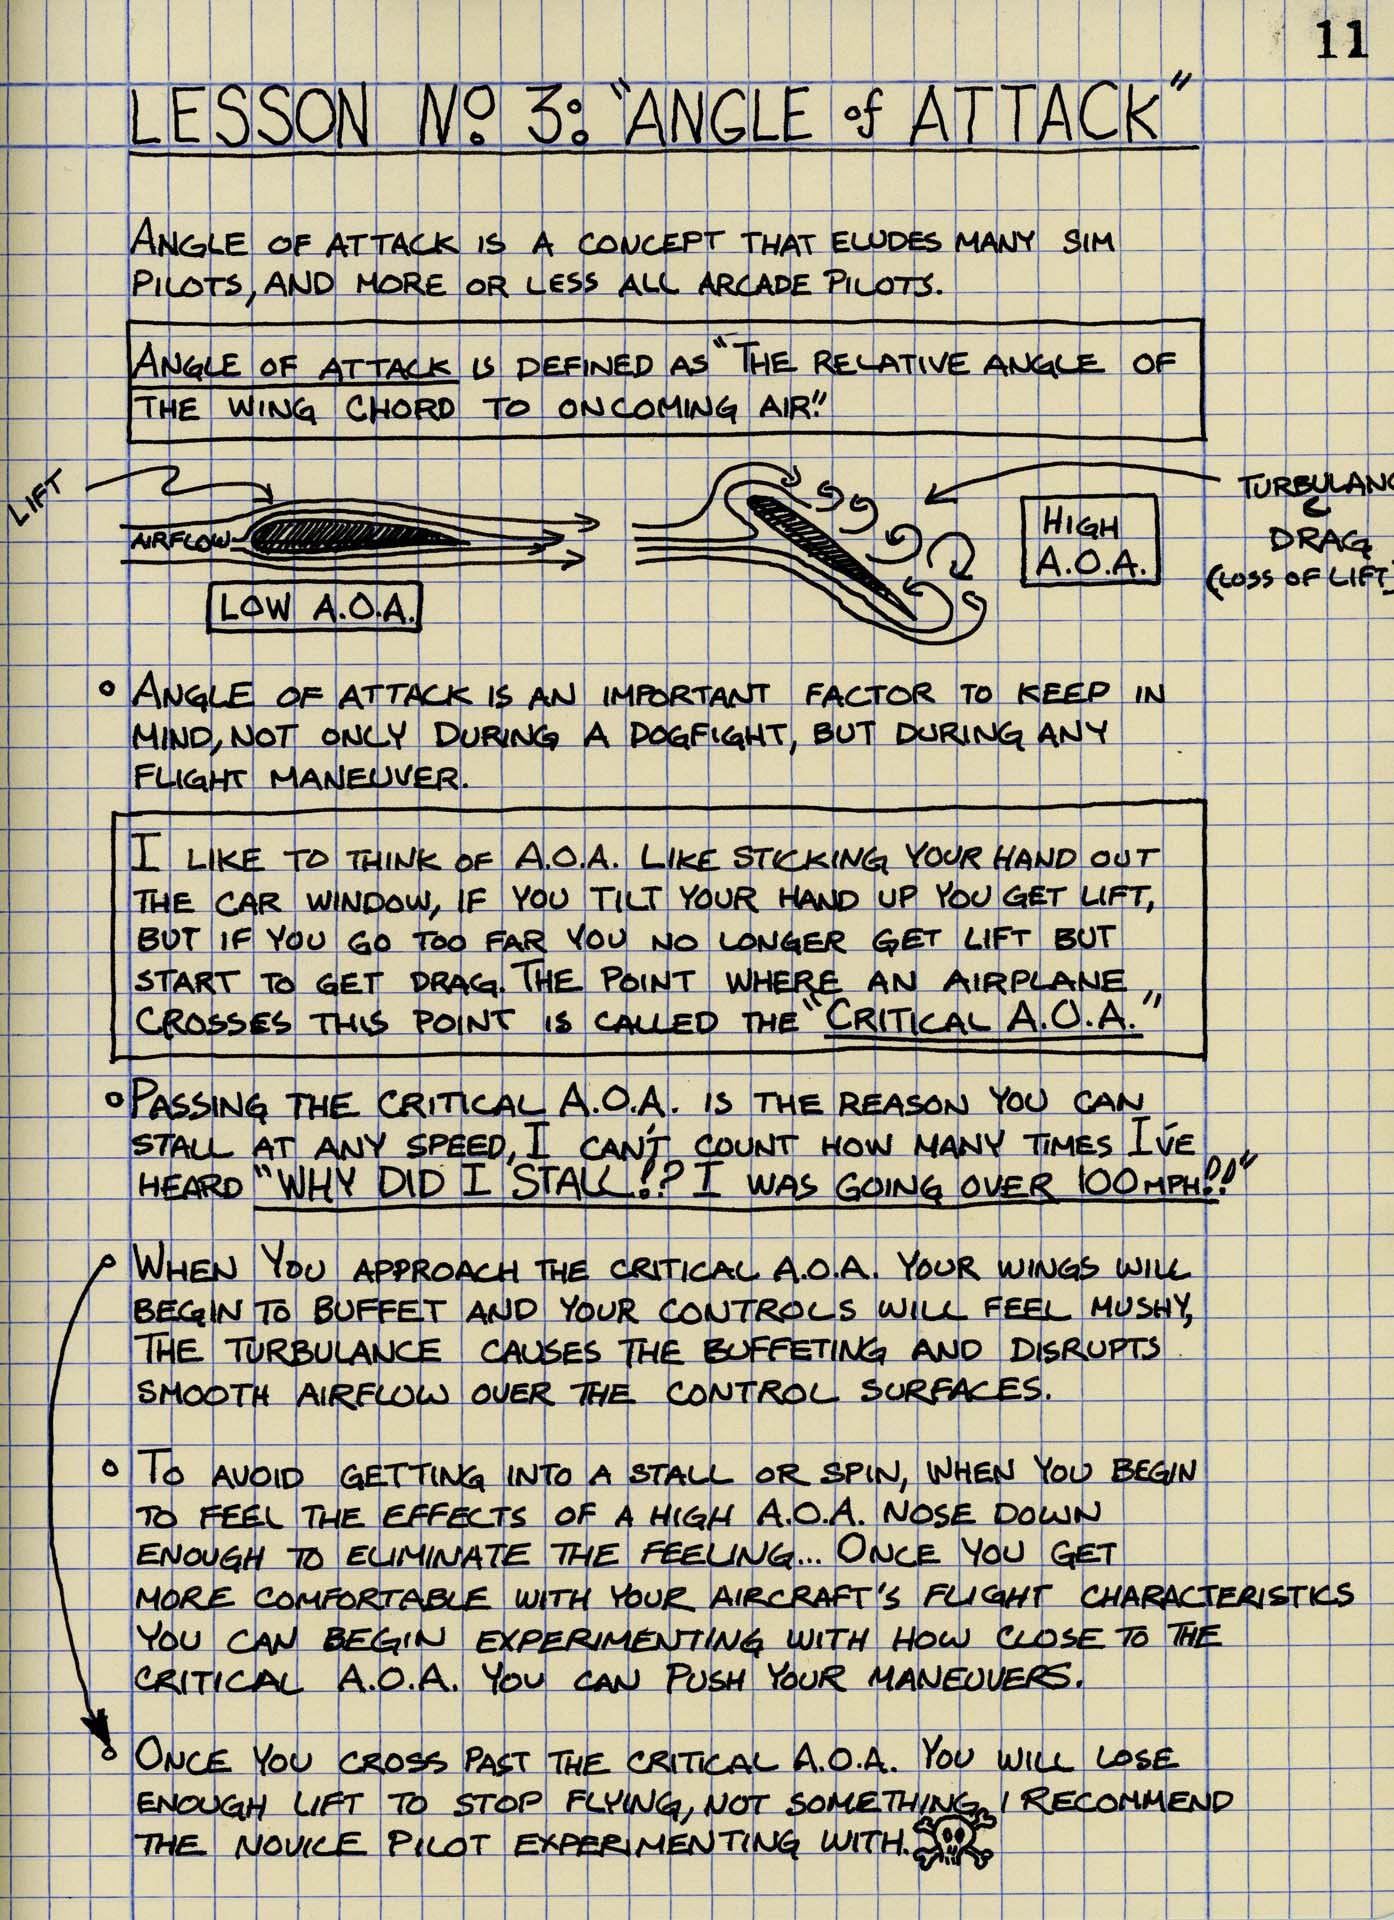 11
LESSON No. 3: "ANGLE of ATTACK"
ANGLE OF ATTACK IS A CONCEPT THAT ELUDES MANY SIM
PILOTS, AND MORE OR LESS ALL ARCADE PILOTS.
ANGLE OF ATTACK IS DEFINED AS "THE RELATIVE ANGLE OF
THE WING CHORD TO ONCOMING AIR."
LIFT
AIRFLOW
LOW A.O.A.
HIGH
A.O.A.
TURBULANCE
DRAG
(LOSS OF LIFT)
° ANGLE OF ATTACK IS AN IMPORTANT FACTOR TO KEEP IN
MIND, NOT ONLY DURING A DOGFIGHT, BUT DURING ANY
FLIGHT MANEUVER.
I LIKE TO THINK OF A.O.A. LIKE STICKING YOUR HAND OUT
THE CAR WINDOW, IF YOU TILT YOUR HAND UP YOU GET LIFT,
BUT IF YOU GO TOO FAR YOU NO LONGER GET LIFT BUT
START TO GET DRAG. THE POINT WHERE AN AIRPLANE
CROSSES THIS POINT IS CALLED THE "CRITICAL A.O.A."
° PASSING THE CRITICAL A.O.A. IS THE REASON YOU CAN
STALL AT ANY SPEED, I CAN'T COUNT HOW MANY TIMES I'VE
HEARD "WHY DID I STALL!? I WAS GOING OVER 100 MPH!!"
° WHEN YOU APPROACH THE CRITICAL A.O.A. YOUR WINGS WILL
BEGIN TO BUFFET AND YOUR CONTROLS WILL FEEL MUSHY,
THE TURBULANCE CAUSES THE BUFFETING AND DISRUPTS
SMOOTH AIRFLOW OVER THE CONTROL SURFACES.
° TO AVOID GETTING INTO A STALL OR SPIN, WHEN YOU BEGIN
TO FEEL THE EFFECTS OF A HIGH A.O.A. NOSE DOWN
ENOUGH TO ELIMINATE THE FEELING... ONCE YOU GET
MORE COMFORTABLE WITH YOUR AIRCRAFT'S FLIGHT CHARACTERISTICS
YOU CAN BEGIN EXPERIMENTING WITH HOW CLOSE TO THE
CRITICAL A.O.A. YOU CAN PUSH YOUR MANEUVERS.
° ONCE YOU CROSS PAST THE CRITICAL A.O.A. YOU WILL LOSE
ENOUGH LIFT TO STOP FLYING, NOT SOMETHING I RECOMMEND
THE NOVICE PILOT EXPERIMENTING WITH.